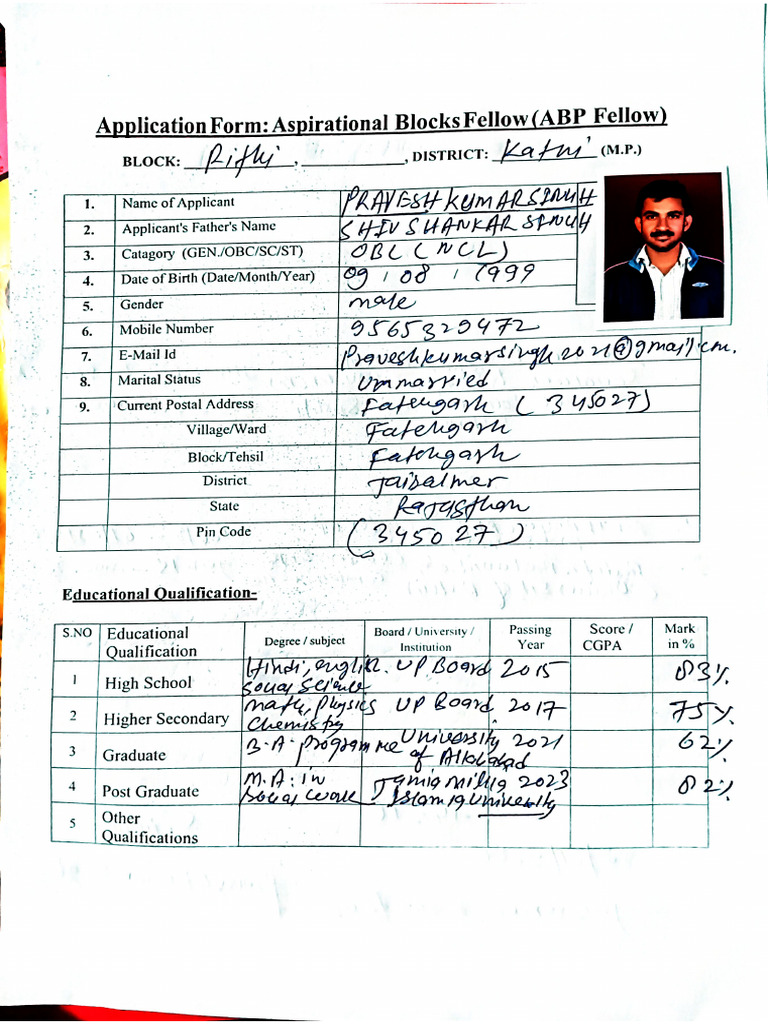 Application Form: Aspirational Blocks Fellow (ABP Fellow)
BLOCK: Rithi , ____________, DISTRICT: Katni (M.P.)
1. Name of Applicant PRAVESH KUMAR SINGH
2. Applicant's Father's Name SHIV SHANKAR SINGH
3. Catagory (GEN./OBC/SC/ST) OBC (NCL)
4. Date of Birth (Date/Month/Year) 09 / 08 / 1999
5. Gender male
6. Mobile Number 9565329472
7. E-Mail Id Praveshkumarsingh2021@gmail.com.
8. Marital Status Unmarried
9. Current Postal Address Fatehgarh (345027)
Village/Ward Fatehgarh
Block/Tehsil Fatehgarh
District Jaisalmer
State Rajasthan
Pin Code (345027)
Educational Qualification-
S.NO Educational Qualification Degree / subject Board / University / Institution Passing Year Score / CGPA Mark in %
1 High School Hindi, english. Social Science UP Board 2015 83%
2 Higher Secondary math, Physics Chemistry UP Board 2017 75%
3 Graduate B.A. programme University of Allahabad 2021 62%
4 Post Graduate M.A. in Social Work Jamia Millia Islamia University 2023 82%
5 Other Qualifications